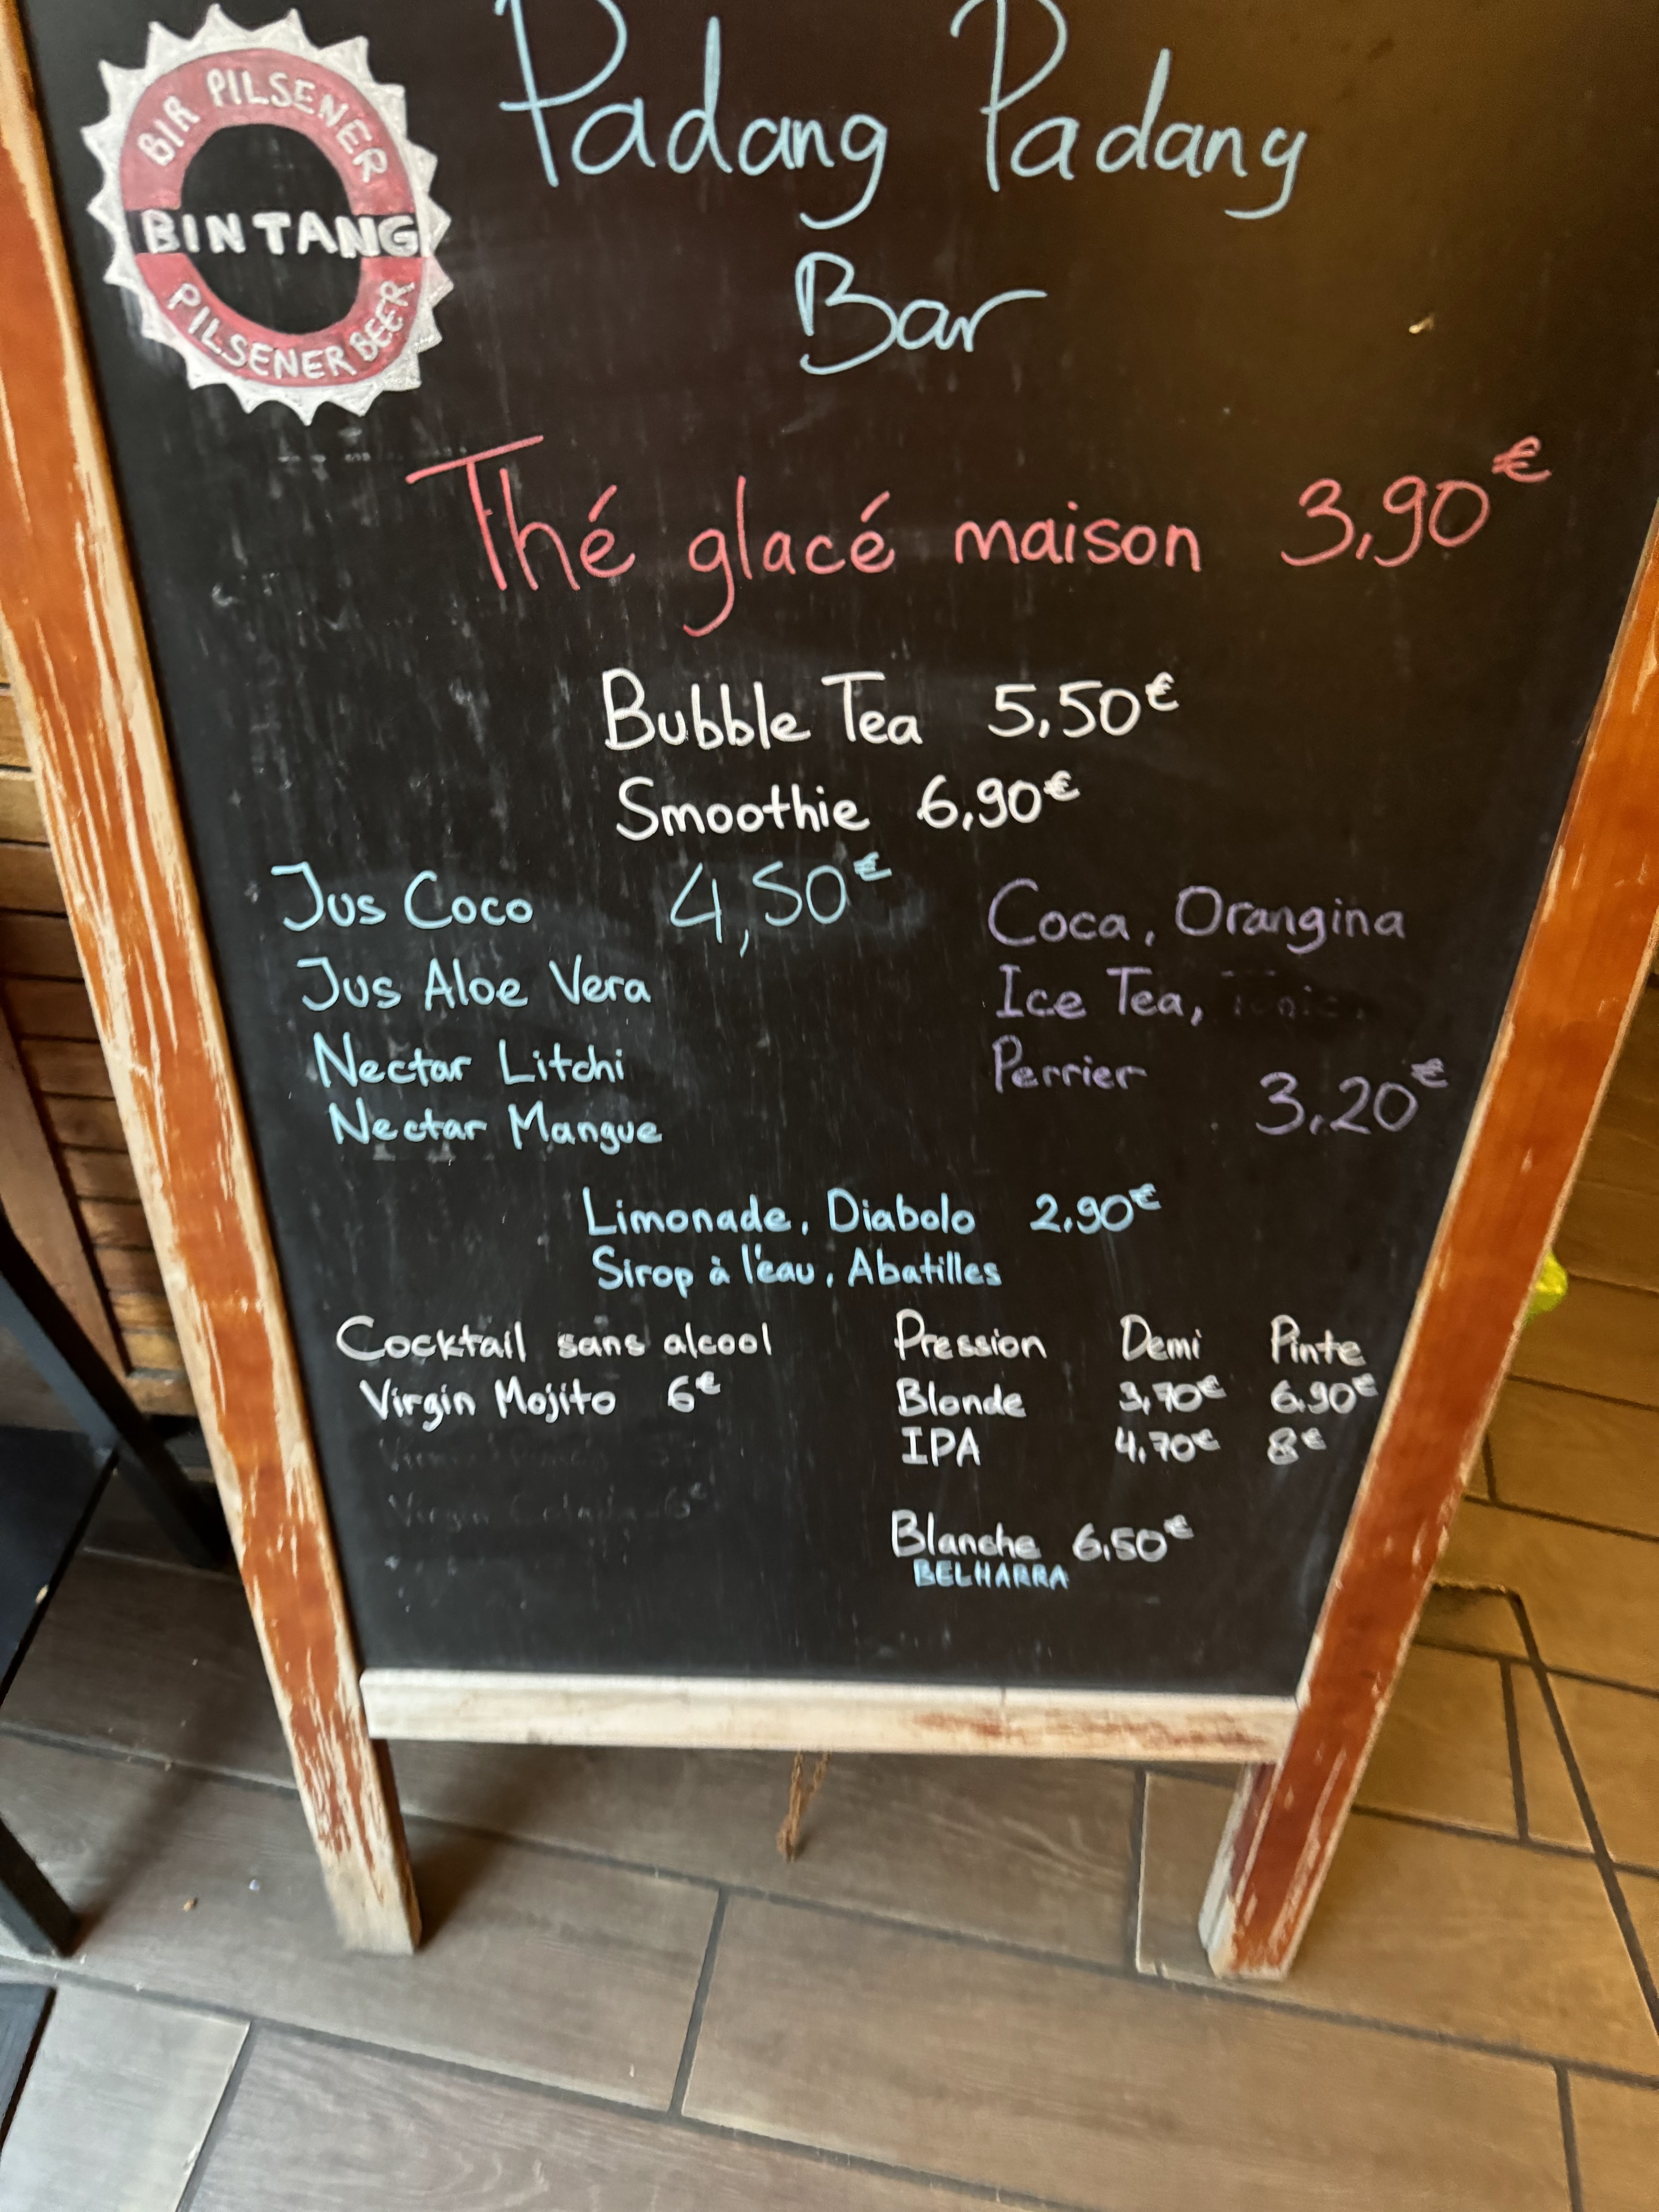 BIR PILSENER
BINTANG
PILSENER BEER
Padang Padang
Bar
Thé glacé maison 3,90€
Bubble Tea 5,50€
Smoothie 6,90€
Jus Coco 4,50€
Jus Aloe Vera
Nectar Litchi
Nectar Mangue
Coca, Orangina
Ice Tea,
Perrier
3,20€
Limonade, Diabolo 2,90€
Sirop à l'eau, Abatilles
Cocktail sans alcool
Virgin Mojito 6€
Pression Demi Pinte
Blonde 3,70€ 6.90€
IPA 4,70€ 8€
Blanche 6,50€
BELHARRA